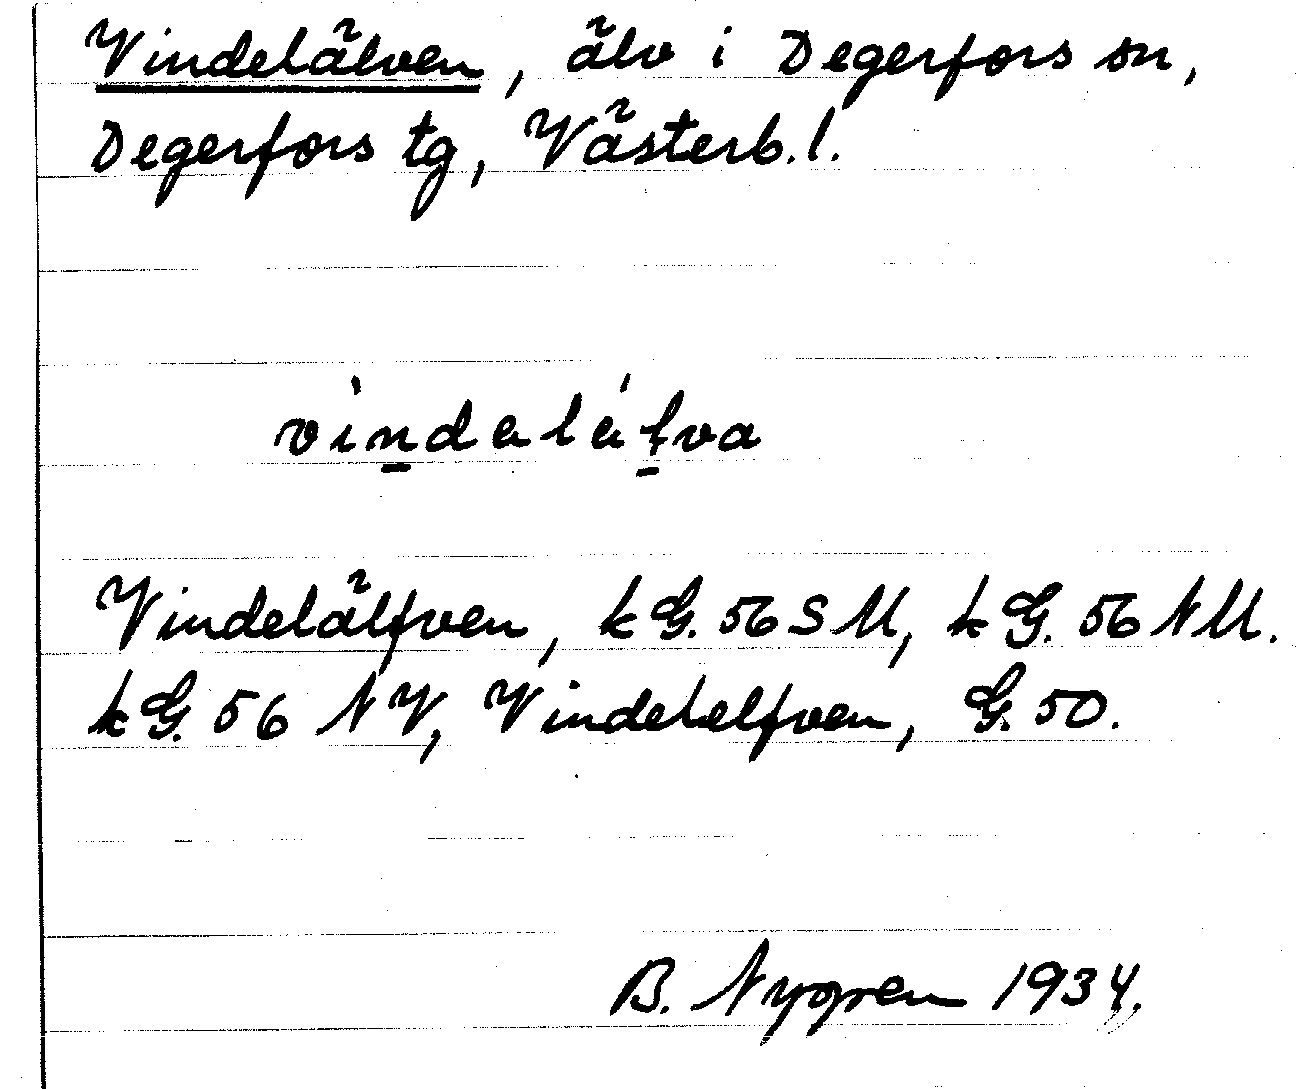 Vindelälven, älv i Degerfors sn,
Degerfors tg, Västerb. l.
vindaläłva
Vindelälfven, k G. 56 S M, k G. 56 N M.
k G. 56 N V, Vindelelfven, G. 50.
B. Nygren 1934.